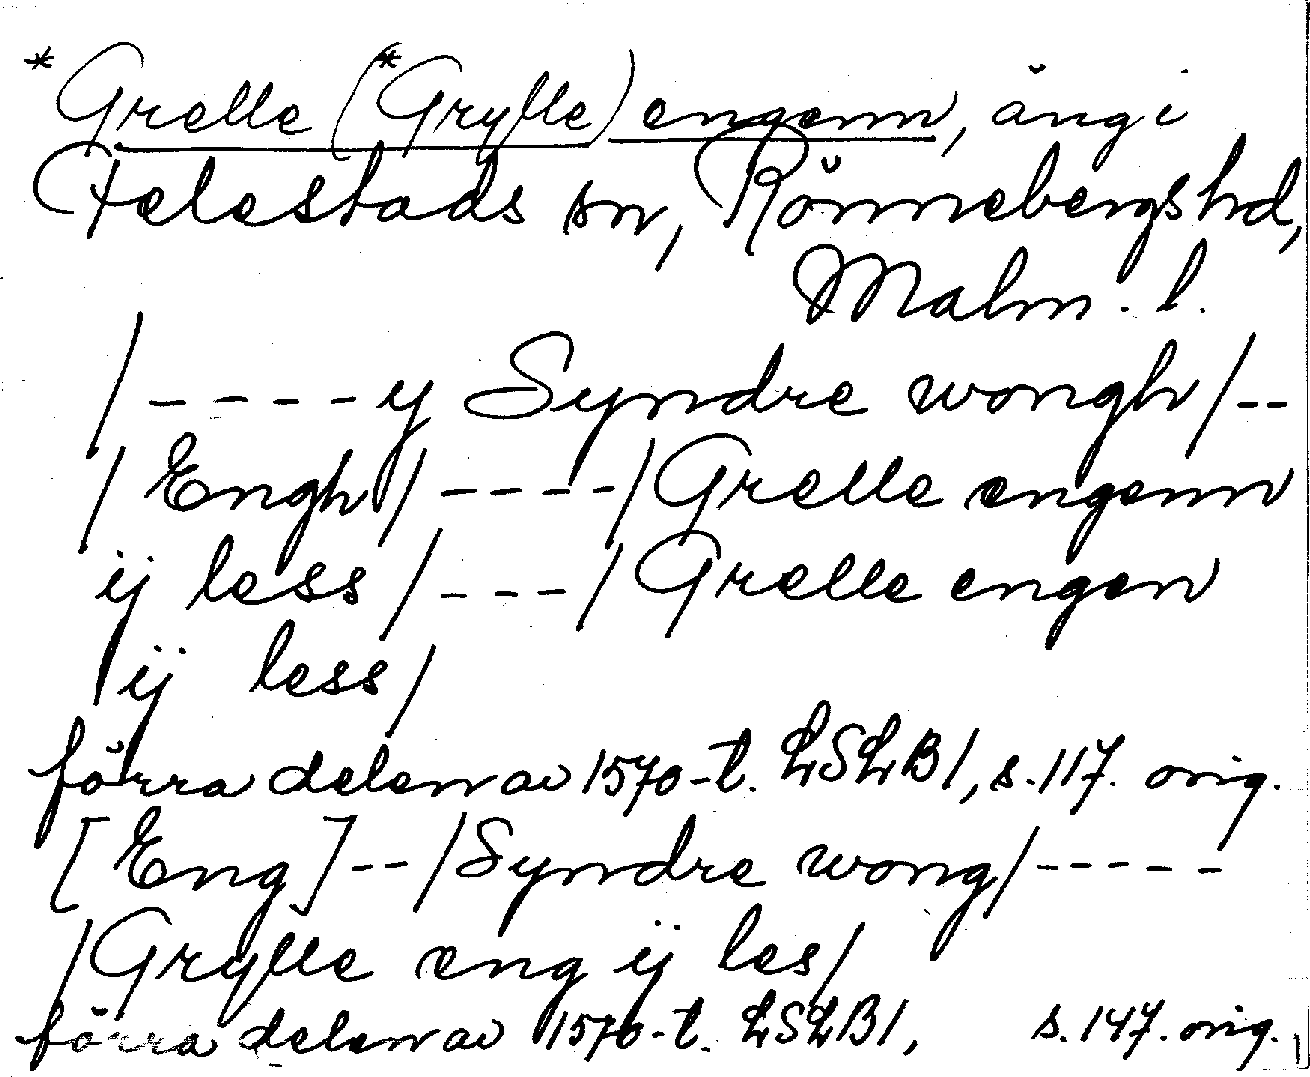 *Grelle (*Grylle) engenn, äng i
Felestads sn, Rönnebergs hd,
Malm. l.
/----y Syndre wongh/--
/Engh/----/Grelle engenn
ij less/---/Grelle engen
ij less/
förra delen av 1570-t. LSLB1, s. 117. orig.
[Eng]--/Syndre wong/-----
/Grylle eng ij les/
förra delen av 1570-t. LSLB1, s. 147. orig.